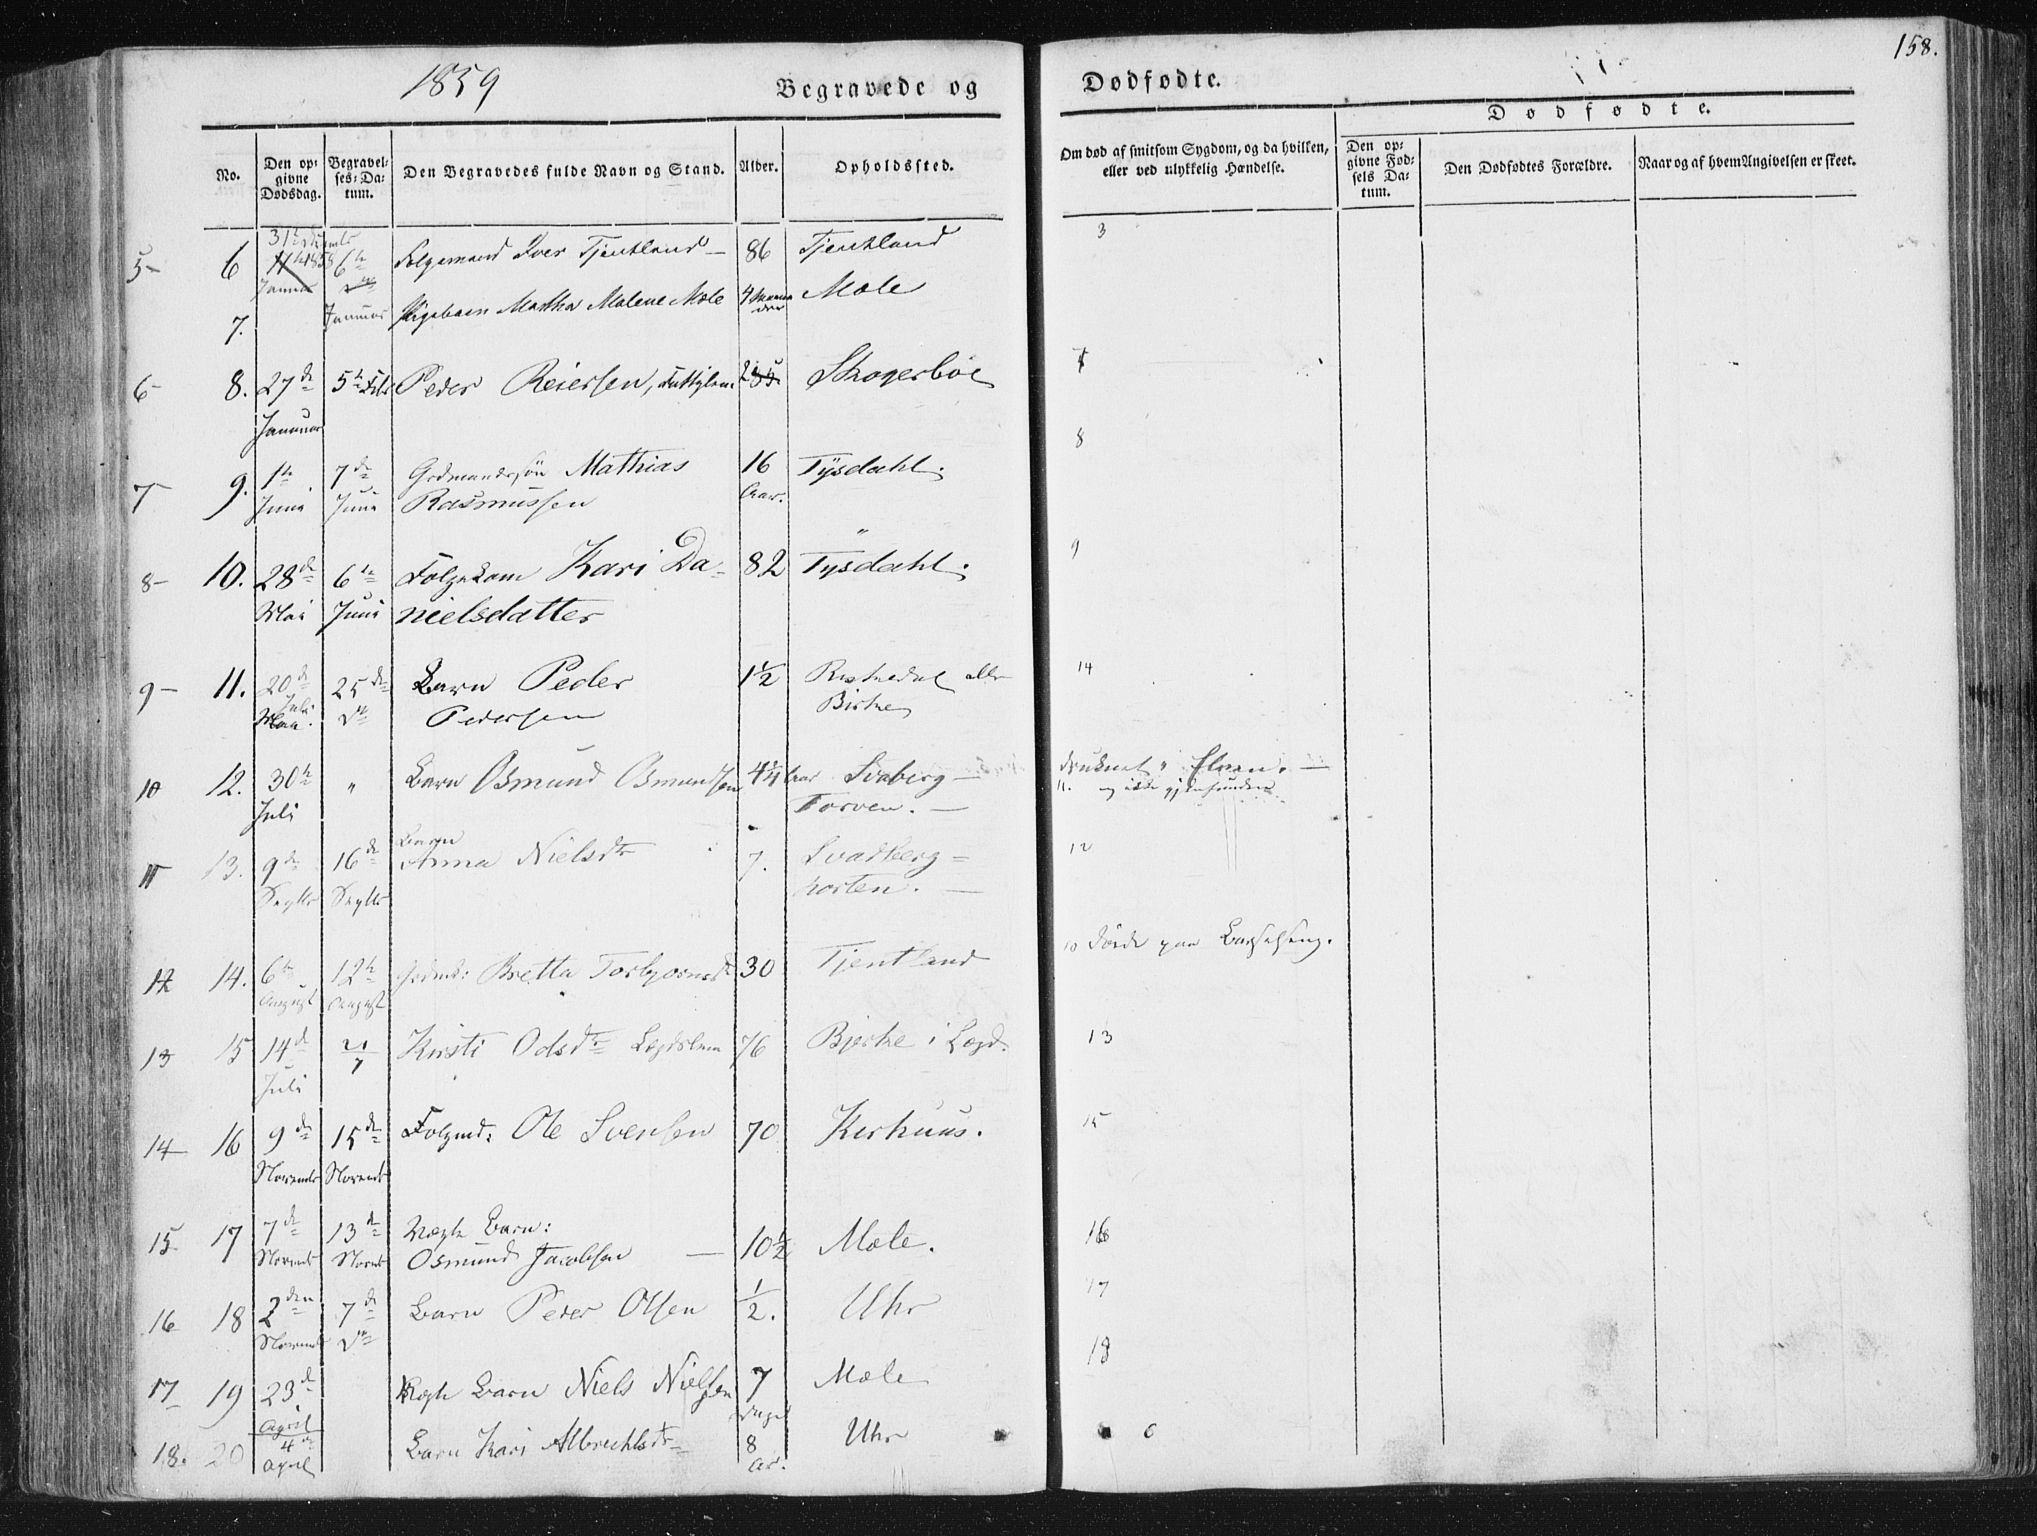 1859
Begravede og
Dødfødte.
158.
Dødfødte.
No.
Den op-
givne
Dødsdag.
Begravel-
ses-Da-
tum.
Den Begravedes fulde Navn og Stand.
Alder.
Opholdssted.
Om død af smitsom Sygdom, og da hvilken,
eller ved ulykkelig Hændelse.
Den op-
givne Fød-
sels Da-
tum.
Den Dødfødtes Forældre.
Naar og af hvem Angivelsen er skeet.
5 6 1858 6 Iver Tjentland 86 Tjentland 3
Januar
7. Januar Pigebarn Martha Malene Mæle 4 Maaneder Mæle
6 8. 27de 5te Febr Peder Reiersen, Skogerbøe 7
Januar
8
7 9. 1te 7de Grdmandssøn Mathias 16 Tysdahl.
Juni Juni Rasmussen Aar.
8 10. 28de 6te Folgekone Kari Da- 82 Tysdahl. 9
Mai Juni nielsdatter
9 11. 20de 25de Barn Peder 1½ eller 14
Juli Do Pedersen Birke
10 12. 30te " Barn Osmund Osmundsen 4¼ Aar Svaberg- druknet i Elven.
Juli Torven. 11. og ikke gjenfunden
11 13. 9de 16de Barn Anna Nielsdtr 7. Svadberg- 12
Septbr Septbr
12 14. 6te 12te Bretta Torbjørnsdtr 30 Tjentland 10 døde paa Barselseng.
August August
13 15 14de 21/7 Kirsti Odsdtr Lægdslem 76 Bjerke i Lægd. 13
Juli
14 16 9de 15de Folgmd: Ole Svensen 70 Kerhuus. 15
Novembr Novembr
15 17 7de 13de Uægte Barn: 16
Novembr Novbr Osmund Jacobsen 10½ Mæle.
16 18 2den 7de Barn Peder Olsen ½. Uhr 17
Novembr Do
18
17 19 23de Uægte Barn Niels Nielsen 7 Mæle
April
18. 20 4de Barn Kari Albrechtsdtr 8 Uhr
April Ar.